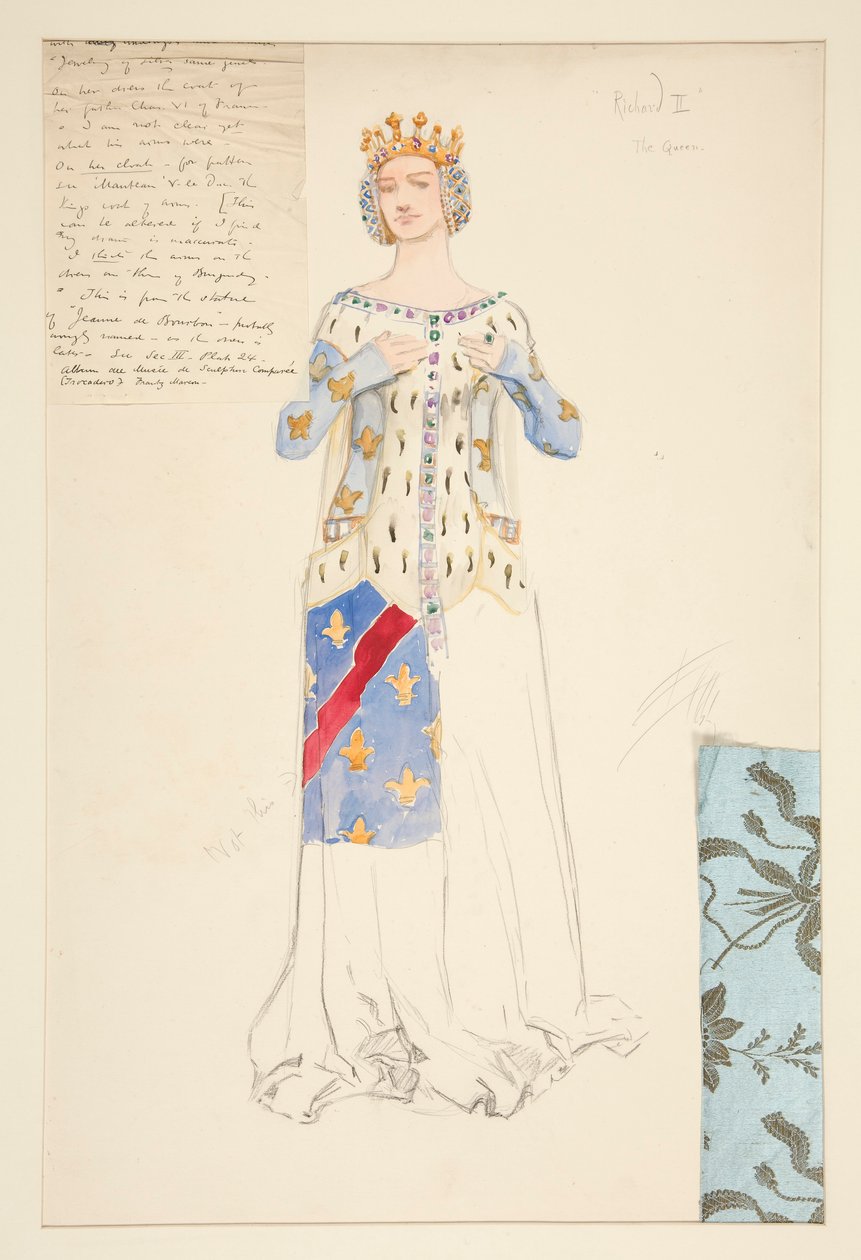 "Jewelling of silver same jewels
on her dress the coat of
her father Chas. VI of France
I am not clear yet
what his arms were -
On her cloak - for pattern
see 'Manteau' V. le Duc. The
Kings coat of arms. [This
can be altered if I find
my drawing is inaccurate.
I think the arms on the
dress are those of Burgundy.
" This is from the statue
of "Jeanne de Bourbon" - probably
wrongly named - as the dress is
later - See Sec III - Plate 24 -
Album du Musée de Sculpture Comparée
(Trocadero) Frantz Marcou -
"Richard II"
The Queen -
Not this